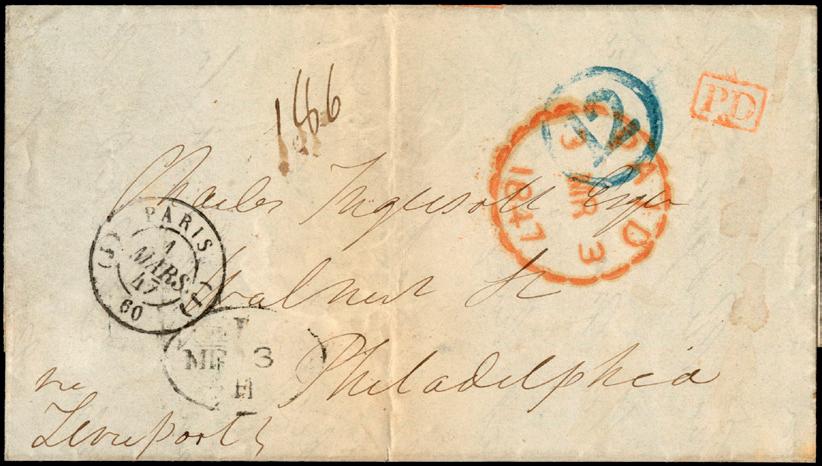 166
12
PD
PAID
3 MR 3
1847
Charles Ingersoll Esqr
Walnut St
Philadelphia
(J) PARIS (J)
1
MARS.
47
60
MR 3
H
via
Liverpool